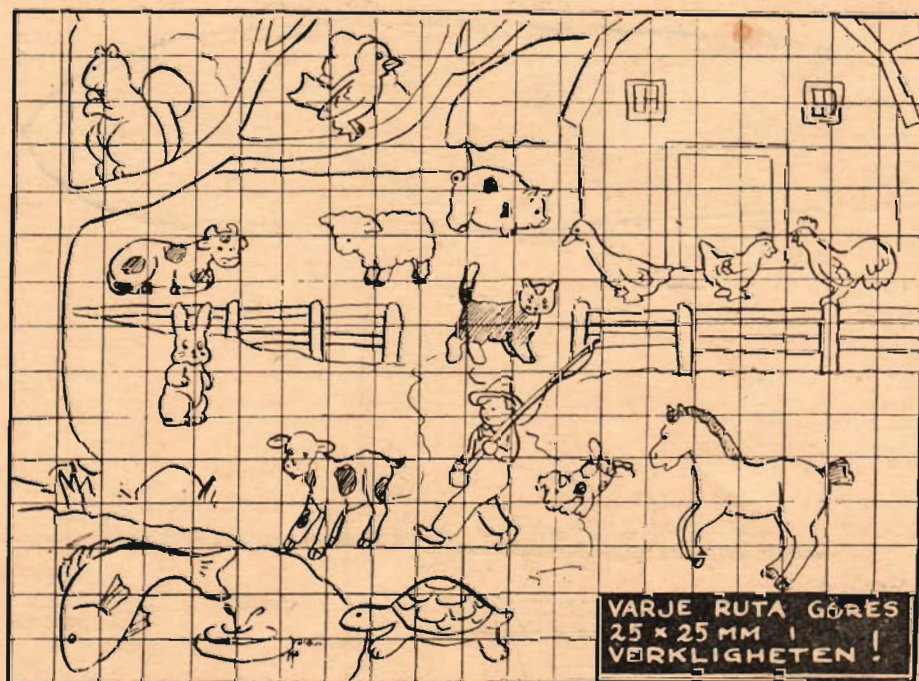 VARJE RUTA GÖRES
25 × 25 MM I
VERKLIGHETEN !